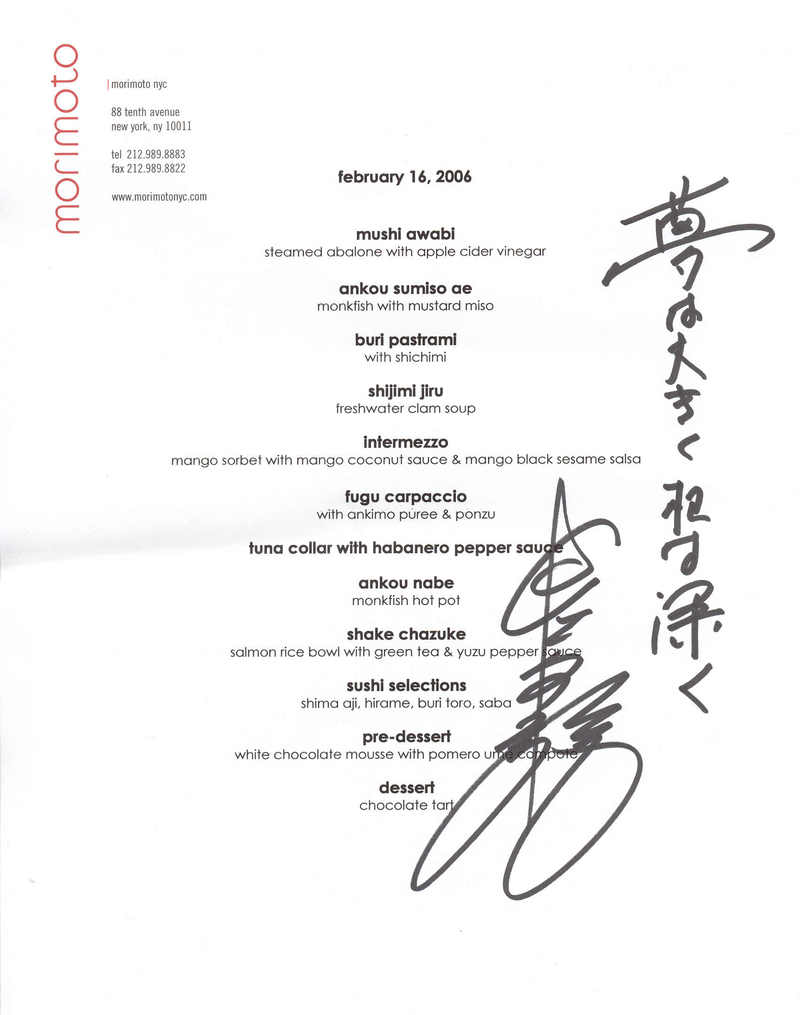 morimoto
morimoto nyc
88 tenth avenue
new york, ny 10011
tel 212.989.8883
fax 212.989.8822
www.morimotonyc.com
february 16, 2006
mushi awabi
steamed abalone with apple cider vinegar
ankou sumiso ae
monkfish with mustard miso
buri pastrami
with shichimi
shijimi jiru
freshwater clam soup
intermezzo
mango sorbet with mango coconut sauce & mango black sesame salsa
fugu carpaccio
with ankimo puree & ponzu
tuna collar with habanero pepper sauce
ankou nabe
monkfish hot pot
shake chazuke
salmon rice bowl with green tea & yuzu pepper sauce
sushi selections
shima aji, hirame, buri toro, saba
pre-dessert
white chocolate mousse with pomero ume compote
dessert
chocolate tart
夢は大きく根は深く